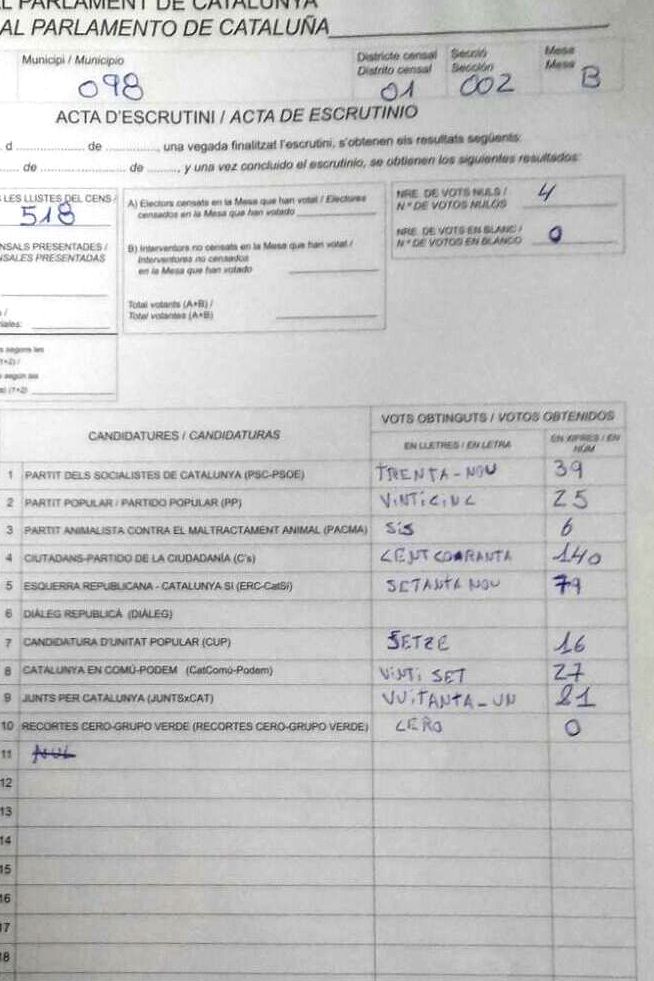 AL PARLAMENT DE CATALUNYA
AL PARLAMENTO DE CATALUÑA
Municipi / Municipio
098
Districte censal
Distrito censal
01
Secció
Sección
002
Mesa
Mesa
B
ACTA D'ESCRUTINI / ACTA DE ESCRUTINIO
d .................. de ............., una vegada finalitzat l'escrutini, s'obtenen els resultats següents:
de ....................... de ........, y una vez concluido el escrutinio, se obtienen los siguientes resultados:
LES LLISTES DEL CENS /
518
PRESENTADES /
PRESENTADAS
A) Electors censats en la Mesa que han votat / Electores
censados en la Mesa que han votado
B) Interventors no censats en la Mesa que han votat /
Interventores no censados
en la Mesa que han votado
Total votants (A+B) /
Total votantes (A+B)
NRE. DE VOTS NULS /
N.º DE VOTOS NULOS
4
NRE. DE VOTS EN BLANC /
N.º DE VOTOS EN BLANCO
0
s segons les
(1+2) /
s según las
(1+2)
CANDIDATURES / CANDIDATURAS
VOTS OBTINGUTS / VOTOS OBTENIDOS
EN LLETRES / EN LETRA
EN XIFRES / EN
NÚM
1 PARTIT DELS SOCIALISTES DE CATALUNYA (PSC-PSOE) TRENTA-NOU 39
2 PARTIT POPULAR / PARTIDO POPULAR (PP) VINTICINC 25
3 PARTIT ANIMALISTA CONTRA EL MALTRACTAMENT ANIMAL (PACMA) SIS 6
4 CIUTADANS-PARTIDO DE LA CIUDADANÍA (C's) CENT COARANTA 140
5 ESQUERRA REPUBLICANA - CATALUNYA SÍ (ERC-CatSí) SETANTA NOU 79
6 DIÀLEG REPUBLICÀ (DIÀLEG)
7 CANDIDATURA D'UNITAT POPULAR (CUP) SETZE 16
8 CATALUNYA EN COMÚ-PODEM (CatComú-Podem) VINTI SET 27
9 JUNTS PER CATALUNYA (JUNTSxCAT) VUITANTA-UN 81
10 RECORTES CERO-GRUPO VERDE (RECORTES CERO-GRUPO VERDE) CERO 0
11 NUL
12
13
14
15
16
17
18